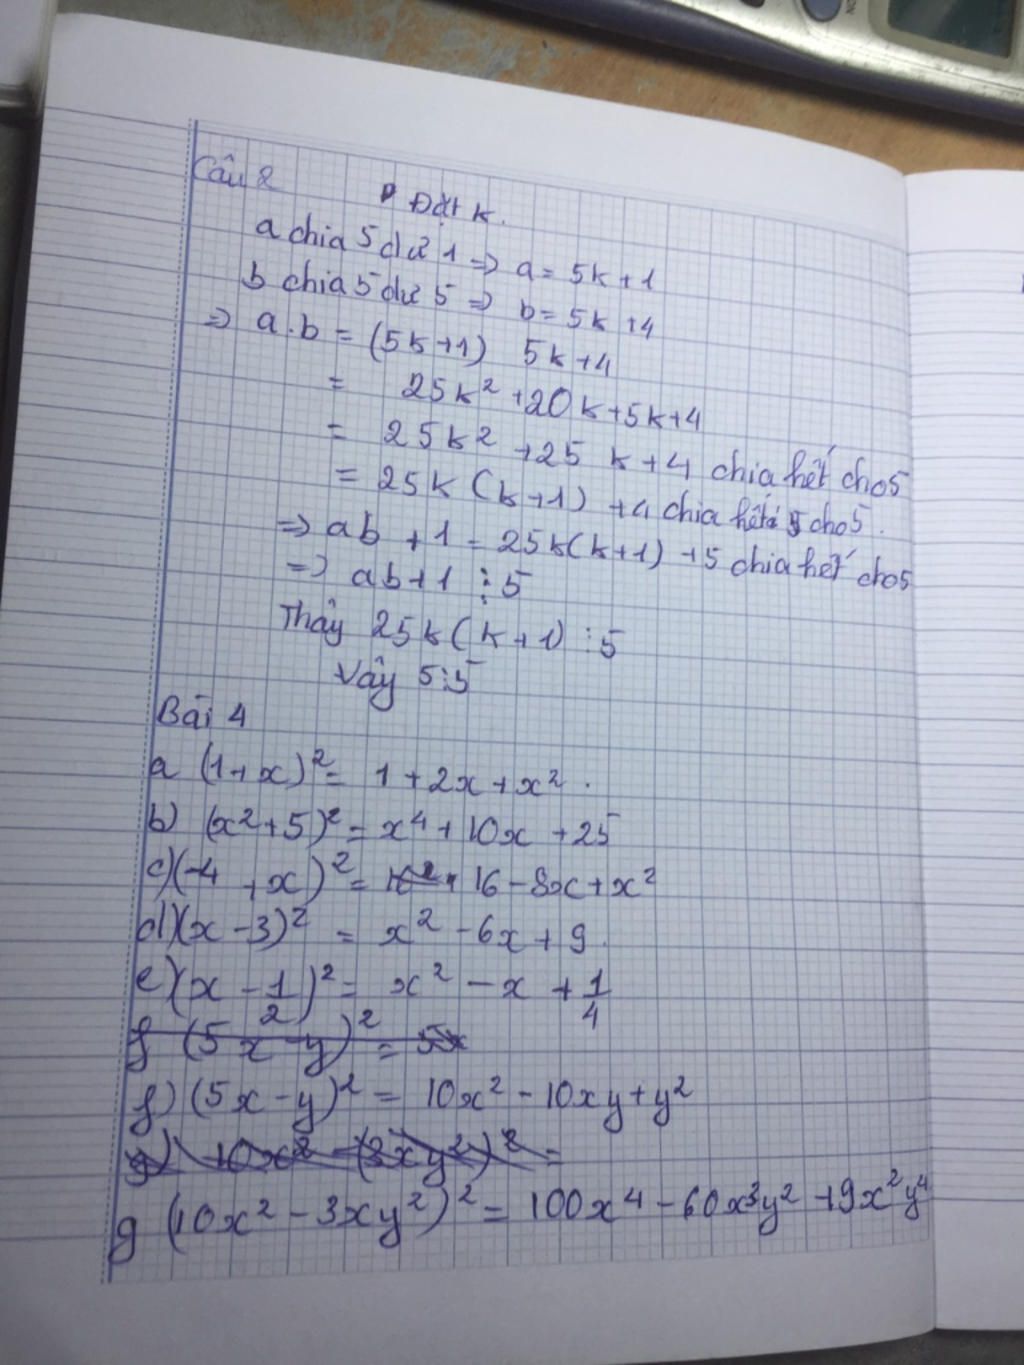 Câu 2
Đặt k.
a chia 5 dư 1 => a = 5k+1
b chia 5 dư 5 => b = 5k+4
=> a.b = (5k+1) 5k+4
= 25k² +20k+5k+4
= 25k² +25 k+4 chia hết cho5
= 25k (k+1) +4 chia hết 5 cho5.
=> ab +1 = 25k(k+1) +5 chia hết cho5
=> ab+1 ⋮ 5
Thấy 25k(k+1) ⋮ 5
Vậy 5⋮5
Bài 4
a (1+x)² = 1+2x+x².
b) (x²+5)² = x⁴+10x +25
c)(-4 +x)² = 16-8x+x²
d)(x-3)² = x²-6x+9.
e)(x-1/2)² = x²-x+1/4
f (5x-y)² = 5x
f) (5x-y)² = 10x²-10xy+y²
g) 10x²-(3xy²)² =
g (10x²-3xy²)² = 100x⁴-60x³y²+9x²y⁴